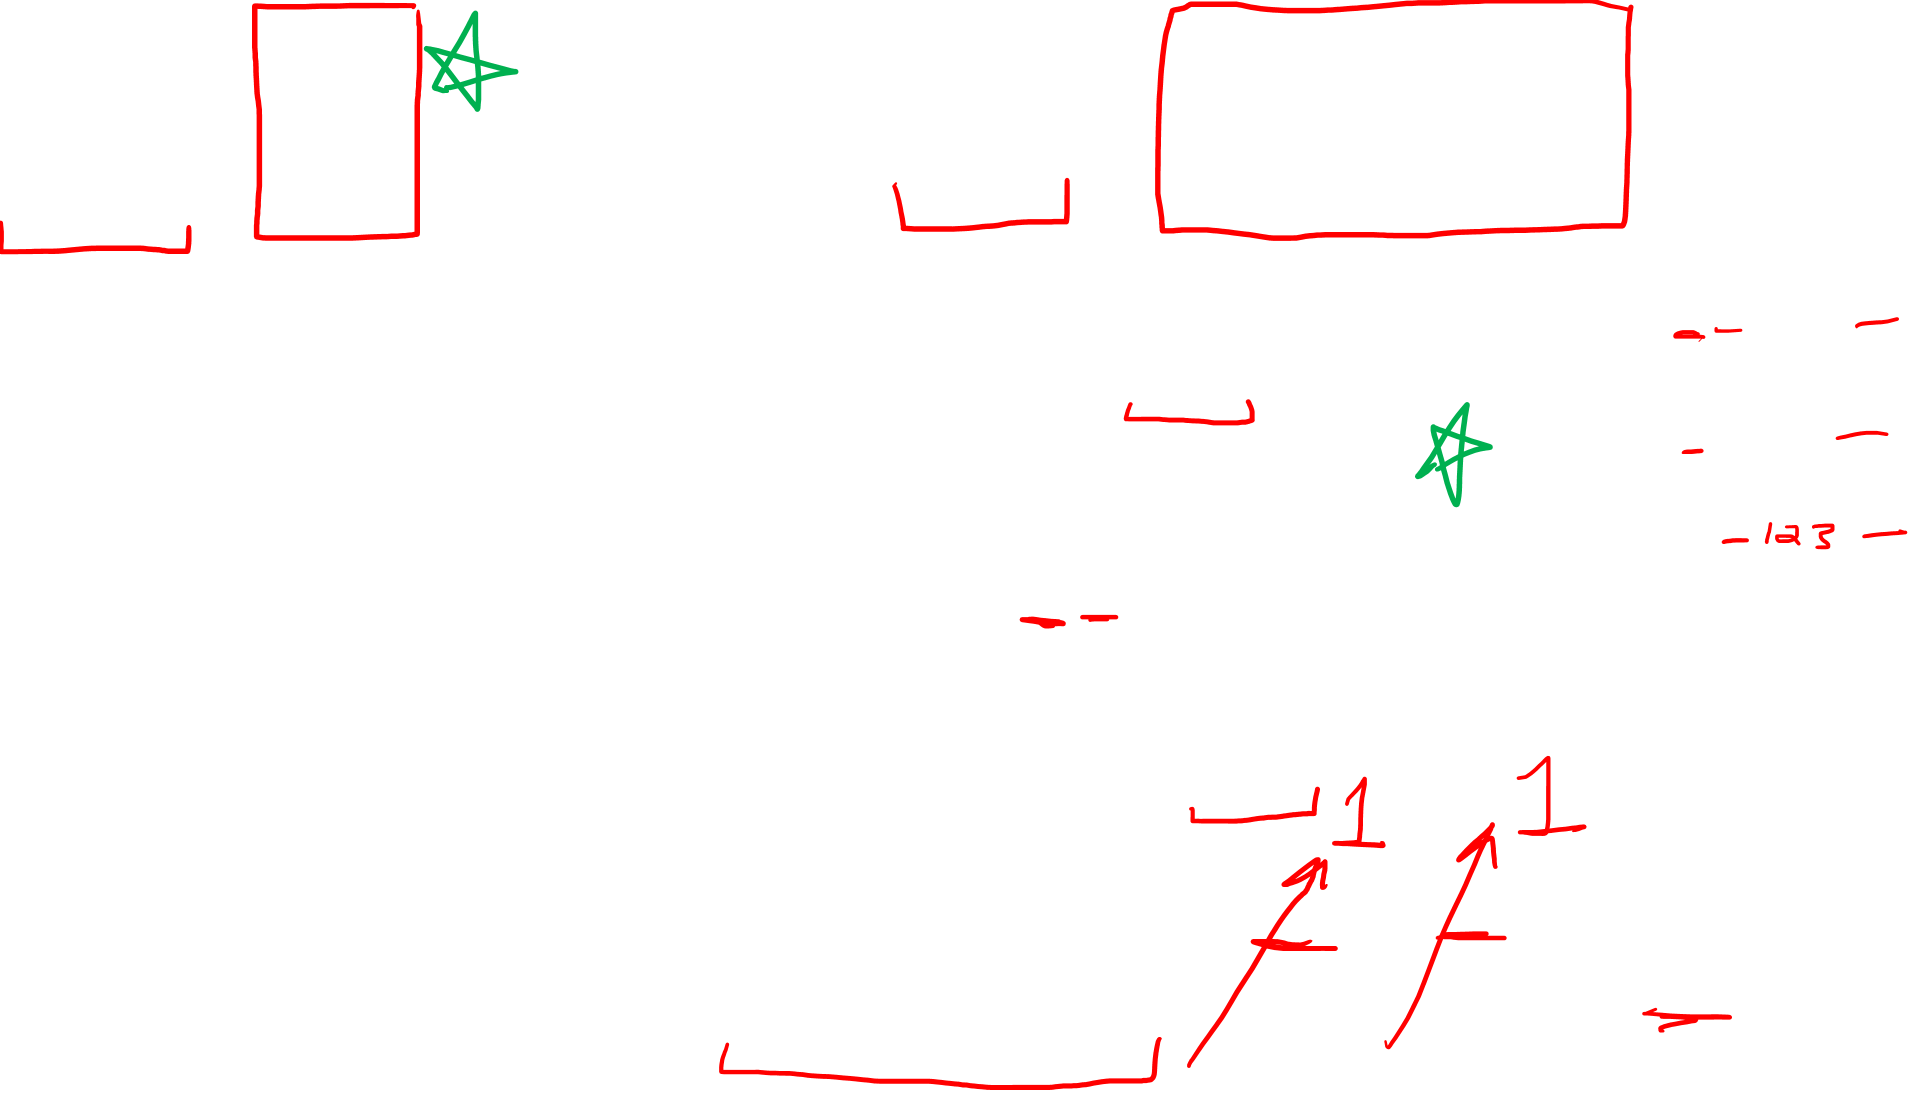 - 123 -
1 1